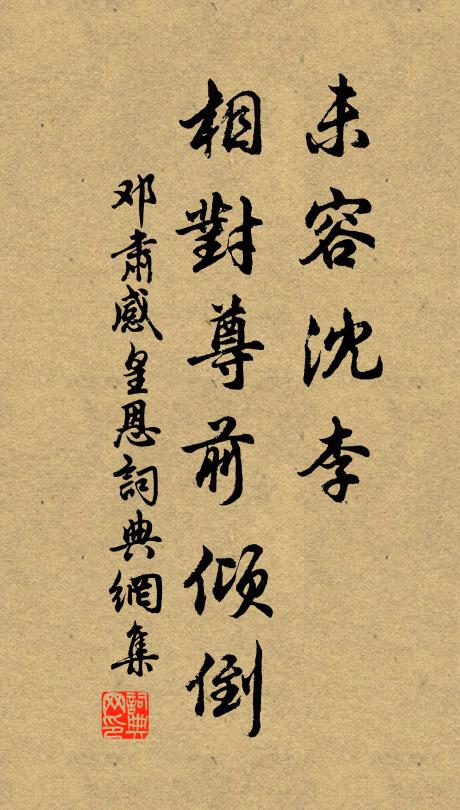 未容沈李
相對尊前傾倒
邓肅感皇恩詞典網集
詞典网印